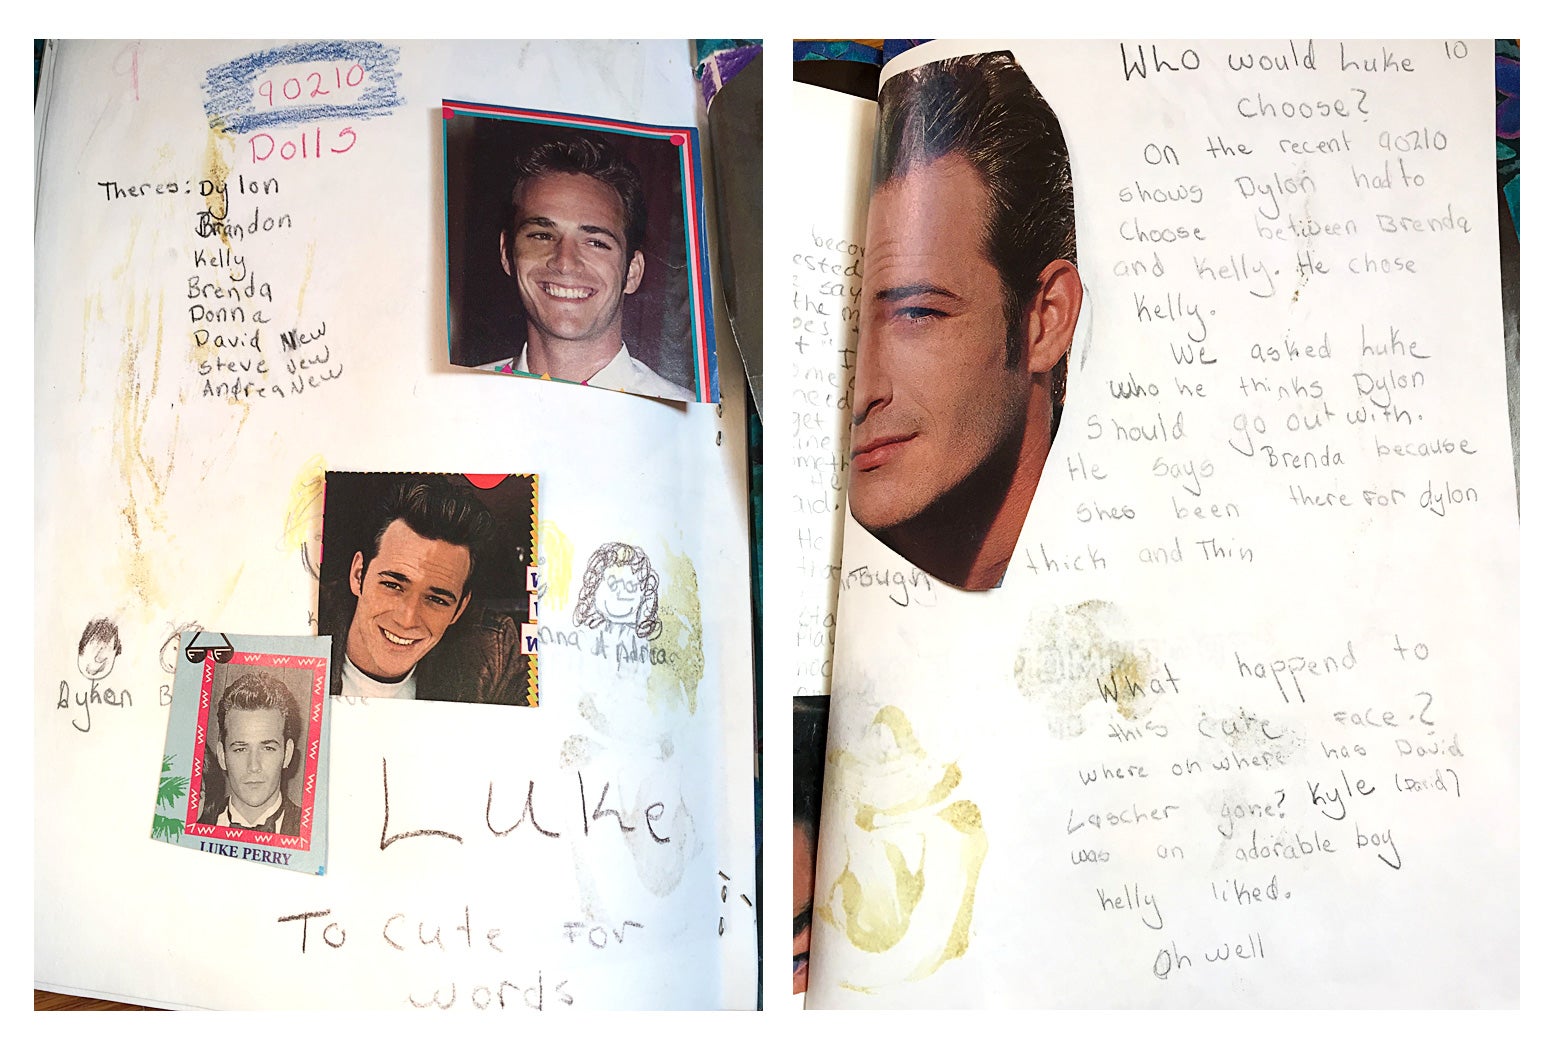 9
90210
Dolls
Theres: Dylon
Brandon
Kelly
Brenda
Donna
David New
Steve New
Andrea New
Dyken
Andrea
LUKE PERRY
Luke
To cute For
words
10
Who would Luke
Choose?
On the recent 90210
shows Dylon had to
Choose between Brenda
and Kelly. He chose
Kelly.
We asked Luke
who he thinks Dylon
Should go out with.
He Says Brenda because
Shes been there For dylon
through thick and Thin
What happend to
this cute Face.?
where oh where has David
Lascher gone? Kyle (David)
was an adorable boy
Kelly liked.
Oh well